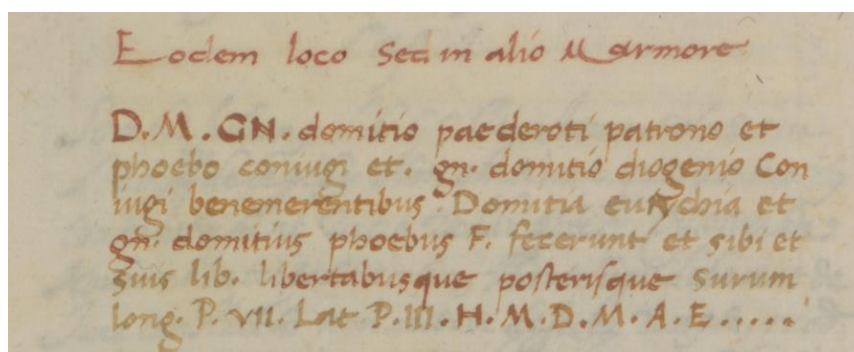 Eodem loco sed in alio Marmore
D.M.GN. domitio paederoti patrono et
phoebo coniugi et. gn. domitio diogenio Con
iugi benemerentibus. Domitia eutychia et
gn. domitius phoebus F. fecerunt et sibi et
suis lib. libertabusque posterisque surum
long. P. VII. Lat P. III. H. M. D. M. A. E.....